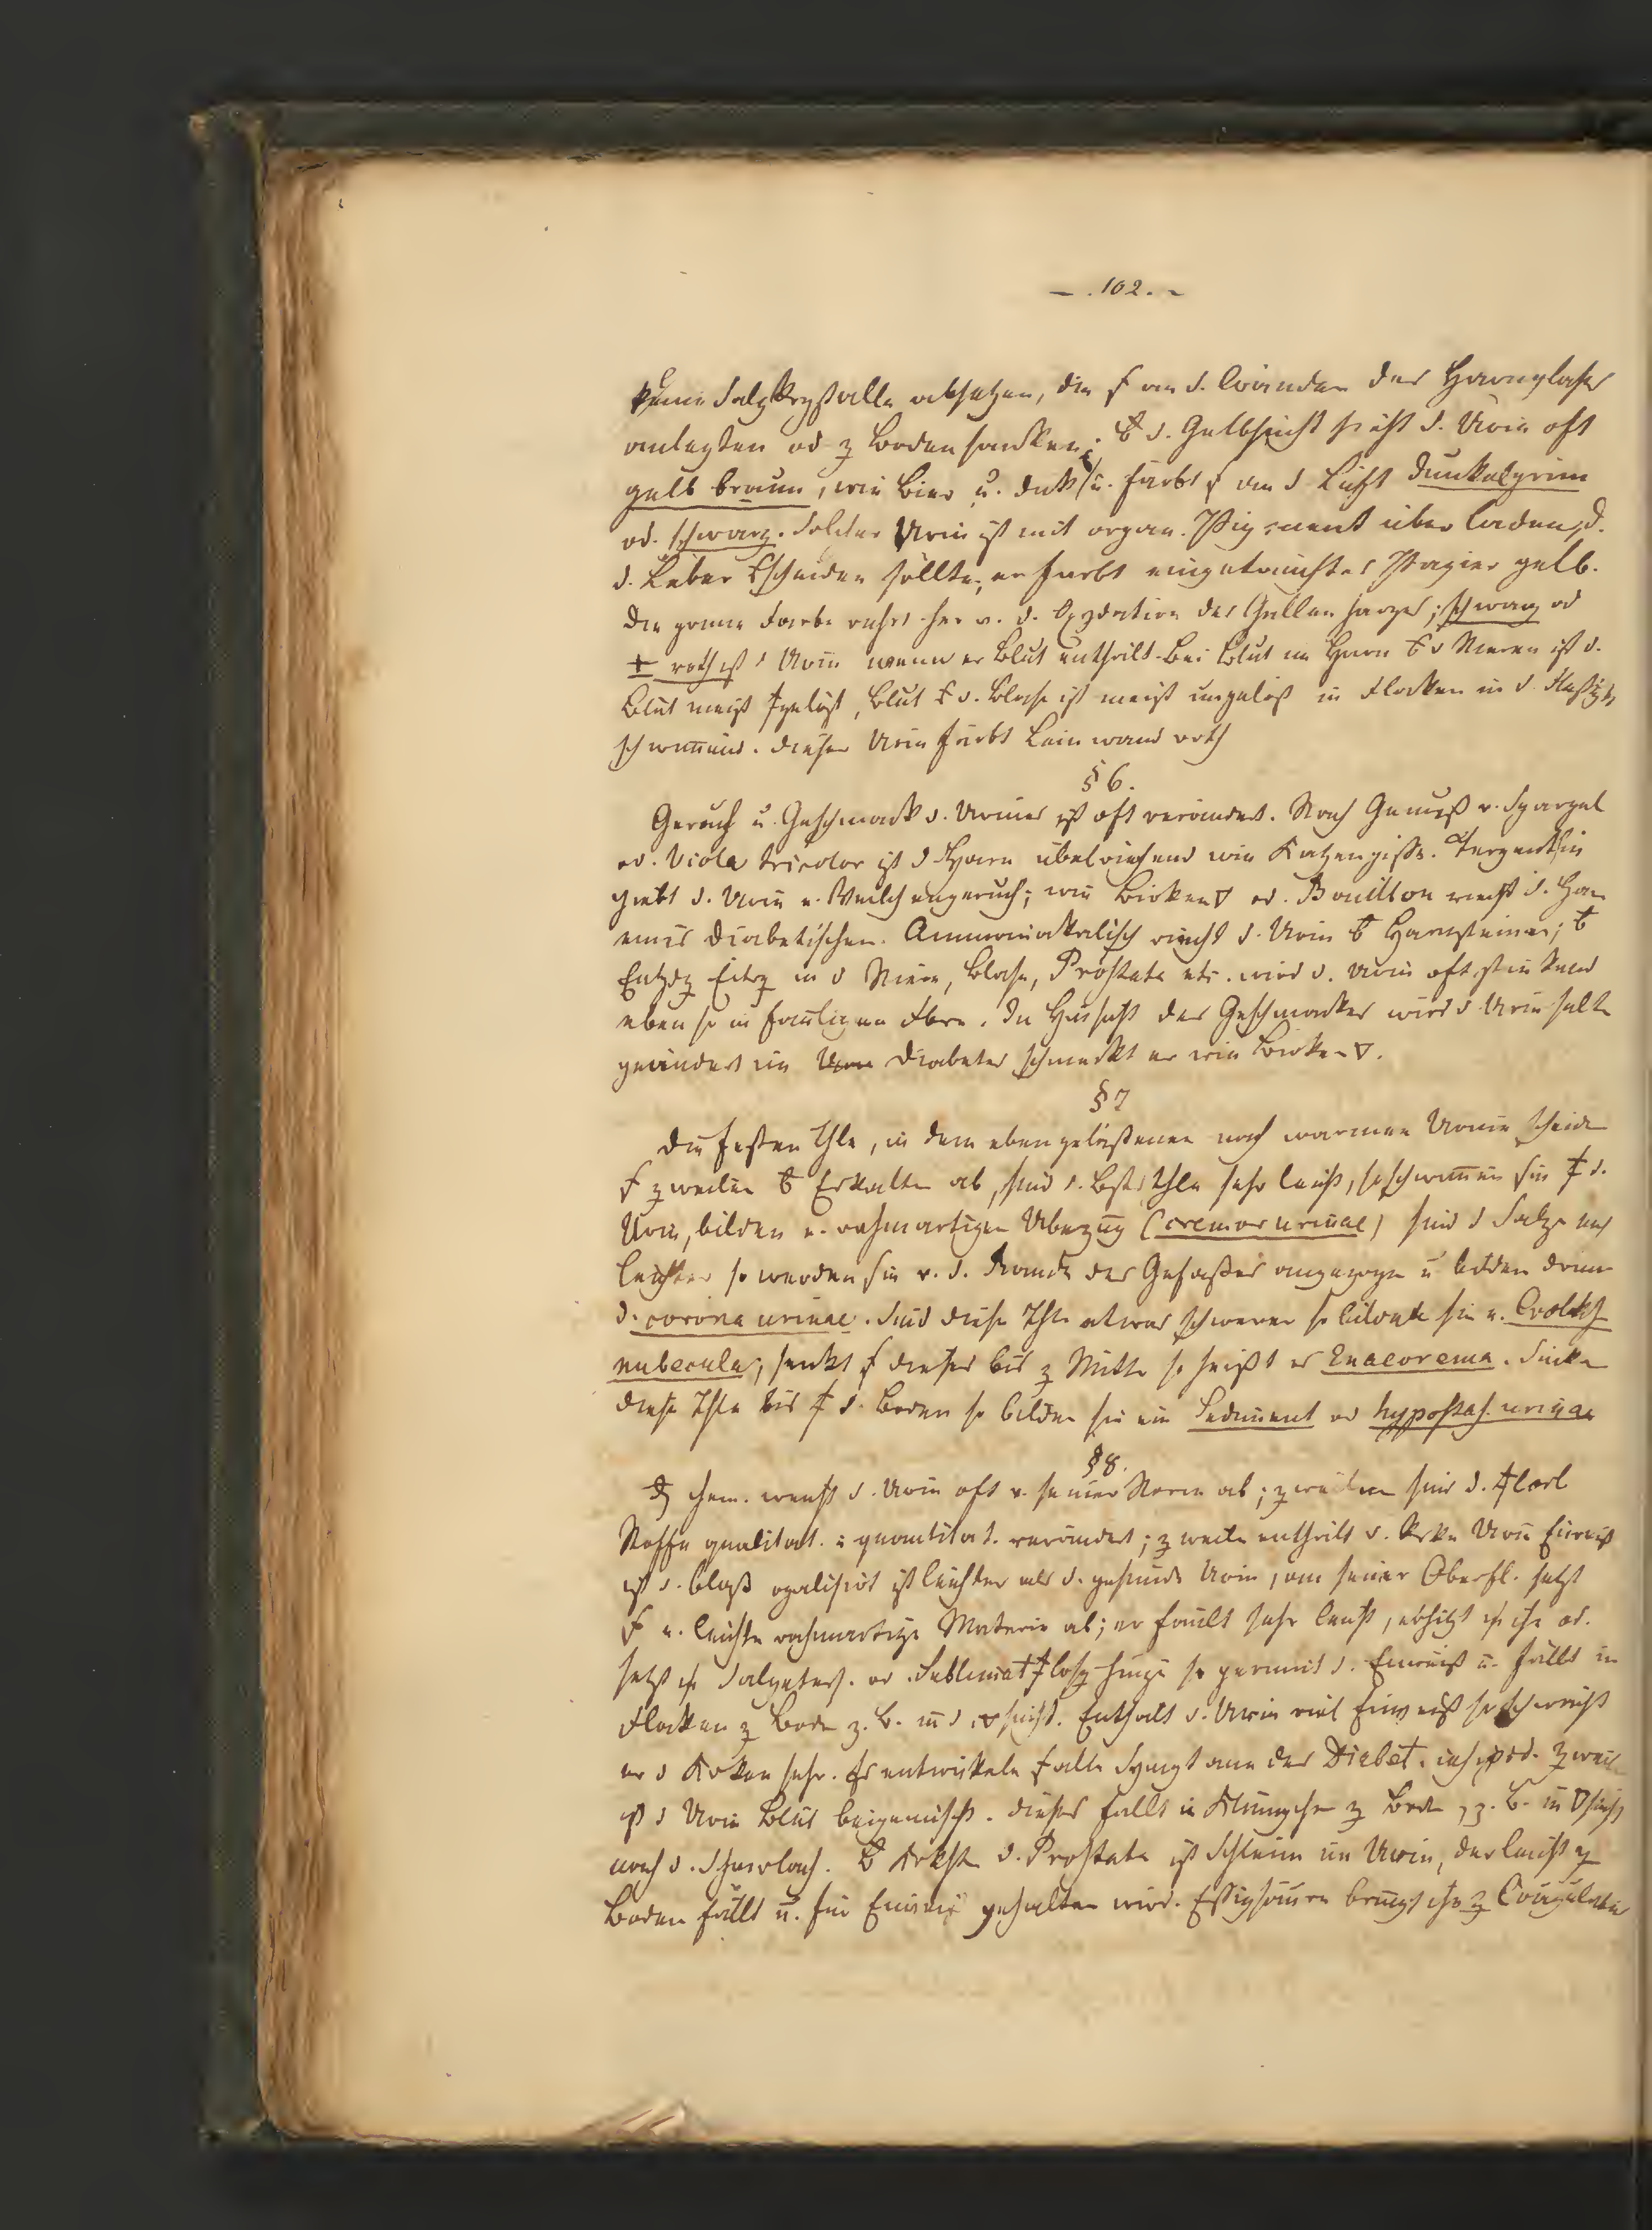 — . 102. ~
keine Salzkrystalle absetzen, die f an d. Wänden des Harnglases
anlegten od z Boden sanken; d. Gelbsucht sieht d. Urin oft
gelb braun, wie Bier u. dick u. färbt f an d Luft dunkelgrün
od. schwarz. Solcher Urin ist mit organ. Pigment überladen, d.
d. Leber scheiden sollte, er färbt eingetauchtes Papier gelb.
Die grüne Farbe rührt her v. d. Oxydation des Gallenharzes; schwarz od
± roth ist d Urin wenn er Blut enthält. Bei Blut im Harn d Nieren ist d.
Blut meist gelöst, Blut d. Blase ist meist ungelöst in Flocken in d.
schwimend. dieser Urin färbt Leinwand roth
§ 6.
Geruch u. Geschmack d. Urines ist oft verändert. Nach Genuß v. Spargel
od. Viola tricolor ist d Harn übelriechend wie Katzenpisse. Terpenthin
giebt d. Urin e. Veilchengeruch; wie Birken▽ od. Bouillon riecht d. Harn
eines Diabetischen. Ammoniakalisch riecht d. Urin Harnsteinen;
in d Niere, Blase, Prostata etc. wird d. Urin oft stinkend
eben so in fauligen Fbrn. In Hinsicht des Geschmackes wird d Urin selten
geändert im Diabetes schmeckt er wie Birken▽.
§ 7
Die festen Thle, in dem eben gelassenen noch warmen Urine scheiden
f zweilen Erkalten ab, sind d. Bstthle sehr leicht, so schwimen sie d.
Urin, bilden e. rahmartigen Überzug (cremor urinae) sind d Salze noch
leichter so werden sie v. d. Rande des Gefäßes angezogen u bilden dann
d. corona urinae. Sind diese Thle etwas schwerer so bilden sie e. Wolke
nubecula; senkt f diese bis z Mitte so heißt es Enaeorema. Sinken
diese Thle bis d. Boden so bilden sie ein Sediment od hypostas. urinae
§ 8.
chem. weicht d. Urin oft v. seiner Norm ab; zweilen sind d.
Stoffe qualitat. u quantitat. verändert; zweilen enthält d. Urin Eiweiß
ist d. blaß opalisirt ist leichter als d. gesunde Urin, an seiner Oberfl. setzt
f e. leichte rahmartige Materie ab; er fault sehr leicht, erhitzt m ihn od.
setzt m Salpeters. od. Sublimat hinzu so gerinnt d. Eiweiß u. fällt in
Flocken z Boden z. B. in d Enthält d. Urin viel Eiweiß so schwächt
er d Krken sehr. Es entwickeln f alle Symptome des Diabet. insipid. Zweilen
ist d Urin Blut beigemischt. dieses fällt in Klümpchen z Boden, z. B. in ▽sucht
nach d. Scharlach. d. Prostata ist Schleim im Urin, der leicht z
Boden fällt u. für Eiweiß gehalten wird. Essigsäure bringt ihn z Coagulation